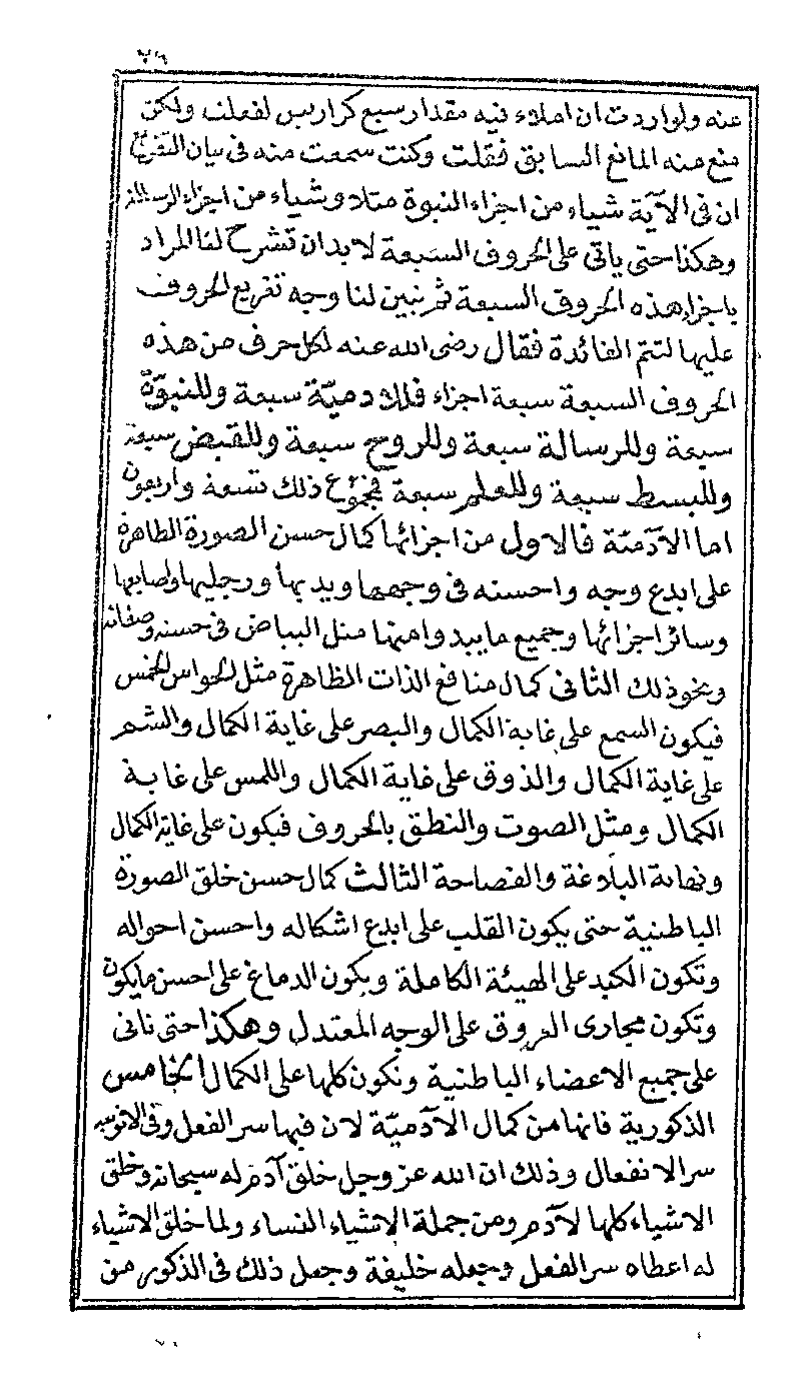 عنه ولو اردت ان املاء فيه مقدار سبع كراريس لفعلت ولكن
منع منه المانع السابق فقلت وكنت سمعت منه فى بيان التفريع
ان فى الآية شياء من اجزاء النبوة مثلا وشياء من اجزاء الرسالة
وهكذا حتى ياتى على الحروف السبعة لا بد ان تشرح لنا المراد
باجزاء هذه الحروف السبعة ثم نبين لنا وجه تفريع الحروف
عليها لتتم الفائدة فقال رضى الله عنه لكل حرف من هذه
الحروف السبعة سبعة اجزاء فللادميّة سبعة وللنبوّة
سبعة وللرسالة سبعة وللروح سبعة وللقبض سبعة
وللبسط سبعة وللعلم سبعة فمجموع ذلك تسعة واربعون
اما الآدميّة فالاول من اجزائها كمال حسن الصورة الظاهرة
على ابدع وجه واحسنه فى وجهها ويديها ورجليها واصابعها
وسائر اجزائها وجميع ما يبدوا منها مثل البياض فى حسنه وصفائه
ونحو ذلك الثانى كمال منافع الذات الظاهرة مثل الحواس الخمس
فيكون السمع على غاية الكمال والبصر على غاية الكمال والشم
على غاية الكمال والذوق على غاية الكمال واللمس على غاية
الكمال ومثل الصوت والنطق بالحروف فيكون على غاية الكمال
ونهاية البلاغة والفصاحة الثالث كمال حسن خلق الصورة
الباطنية حتى يكون القلب على ابدع اشكاله واحسن احواله
وتكون الكبد على الهيئة الكاملة ويكون الدماغ على احسن ما يكون
وتكون مجارى العروق على الوجه المعتدل وهكذا حتى ناتى
على جميع الاعضاء الباطنية وتكون كلها على الكمال الخامس
الذكورية فانها من كمال الآدميّة لان فيها سر الفعل وفى الانوثية
سر الانفعال وذلك ان الله عز وجل خلق آدم له سبحانه وخلق
الاشياء كلها لآدم ومن جملة الاشياء النساء ولما خلق الاشياء
له اعطاه سر الفعل وجعله خليفة وجعل ذلك فى الذكور من